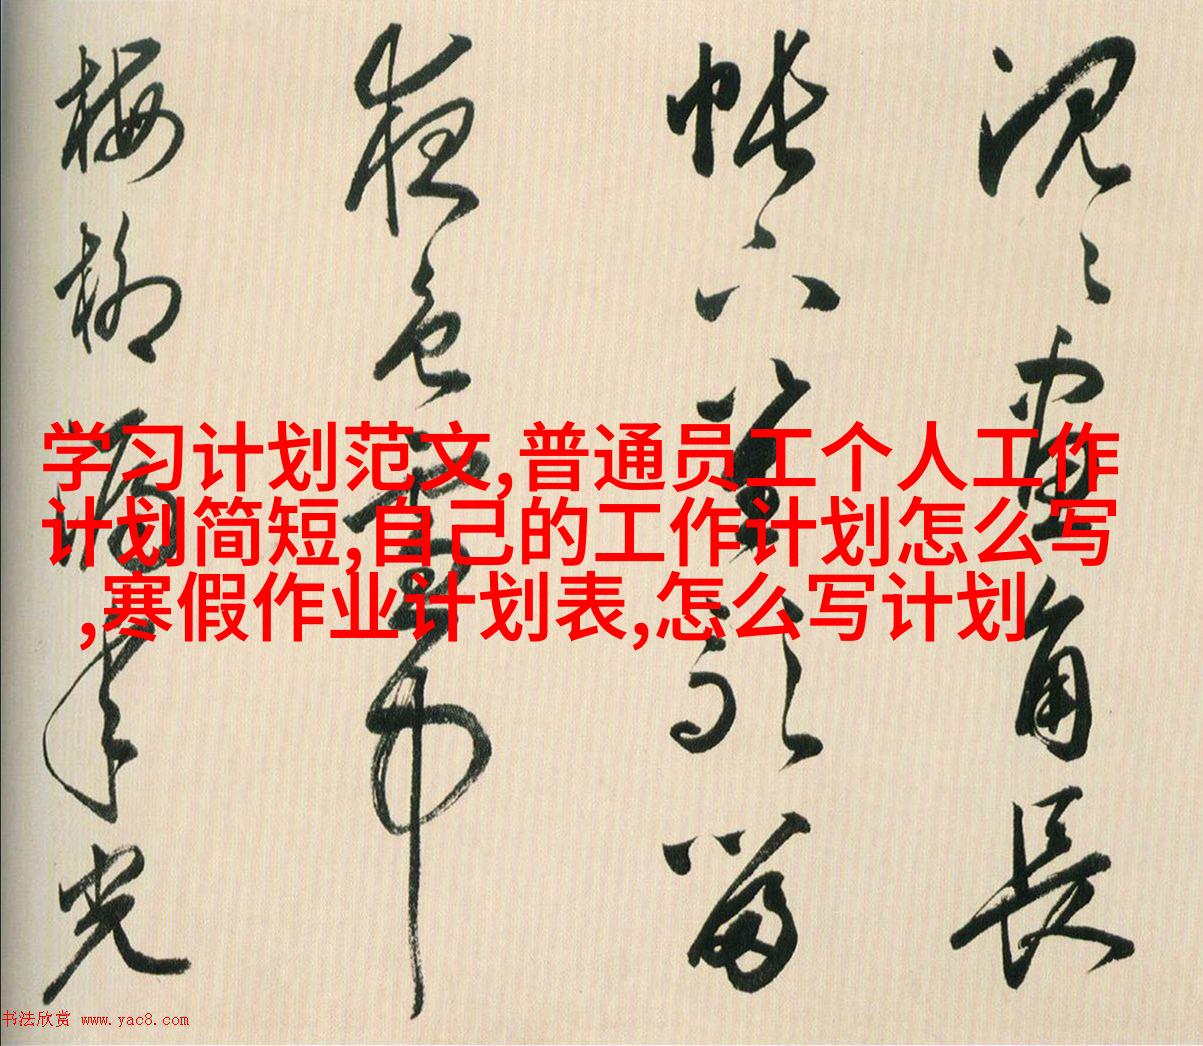 学习计划范文,普通员工个人工作
计划简短,自己的工作计划怎么写
,寒假作业计划表,怎么写计划
畫角長
帳留
夜色
梅柳年光
书法欣赏 www.yac8.com